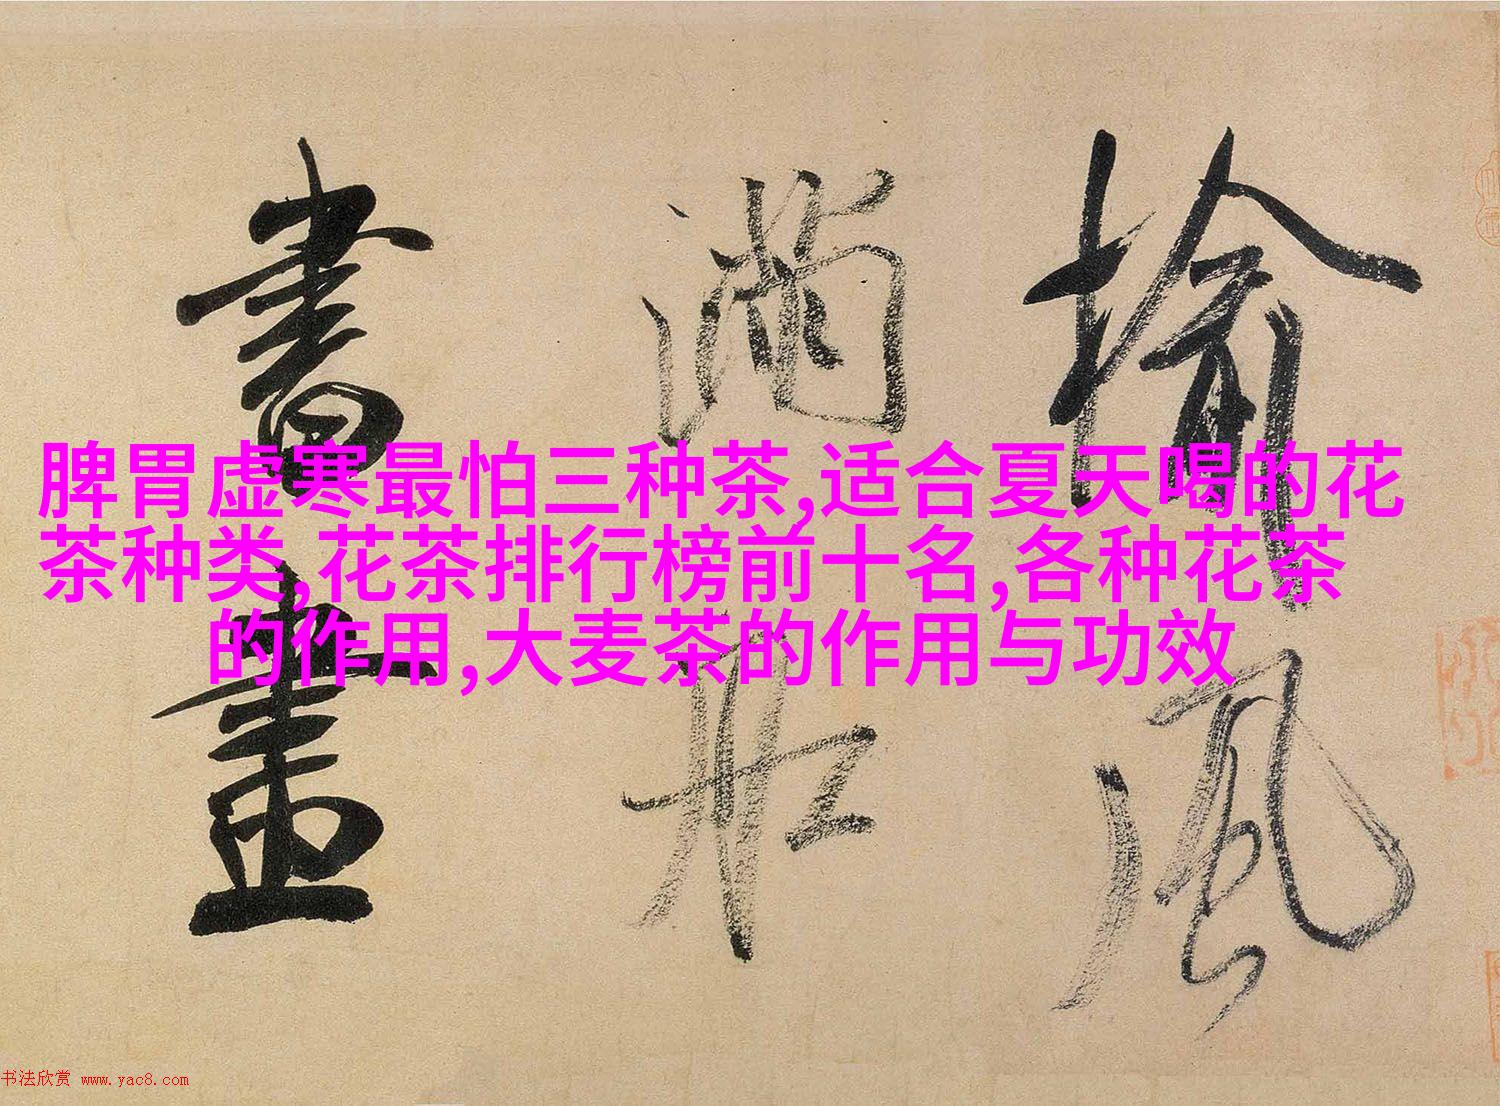 榆風
滿船
書畫
脾胃虚寒最怕三种茶,适合夏天喝的花
茶种类,花茶排行榜前十名,各种花茶
的作用,大麦茶的作用与功效
书法欣赏 www.yac8.com